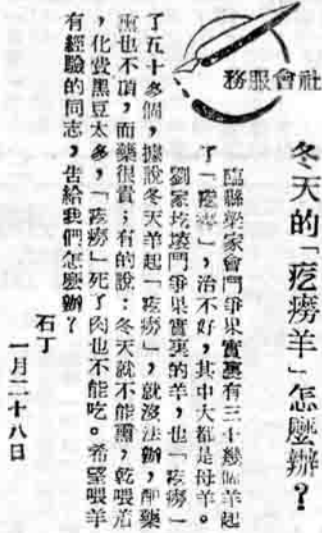 社會服務
冬天的「疙癆羊」怎麼辦?
臨縣梁家會鬥爭果實裏有三十幾個羊起
了「疙癆」,治不好,其中大都是母羊。
劉家圪鬥爭果實裏的羊,也「疙癆」
了五十多個,據說冬天羊起「疙癆」,就沒法辦,藥
熏也不頂,而藥很貴;有的說:冬天就不能熏,乾喂着
,化費黑豆太多,「疙癆」死了肉也不能吃。希望喂羊
有經驗的同志,告給我們怎麼辦?
石丁
一月二十八日